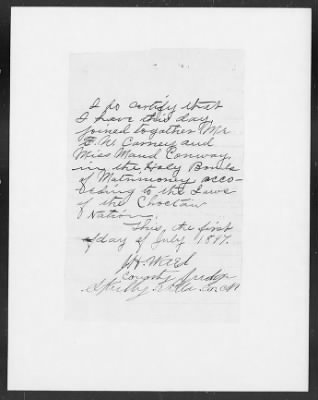 I do certify that
I have this day
joined together Mr
E. W Carney and
Miss Maud Conway
in the Holy Bonds
of Matrimoney acco-
rding to the Laws
of the Choctaw
Nation
This, the first
day of July 1897.
J.H. Ward
County Judge
Co. CN